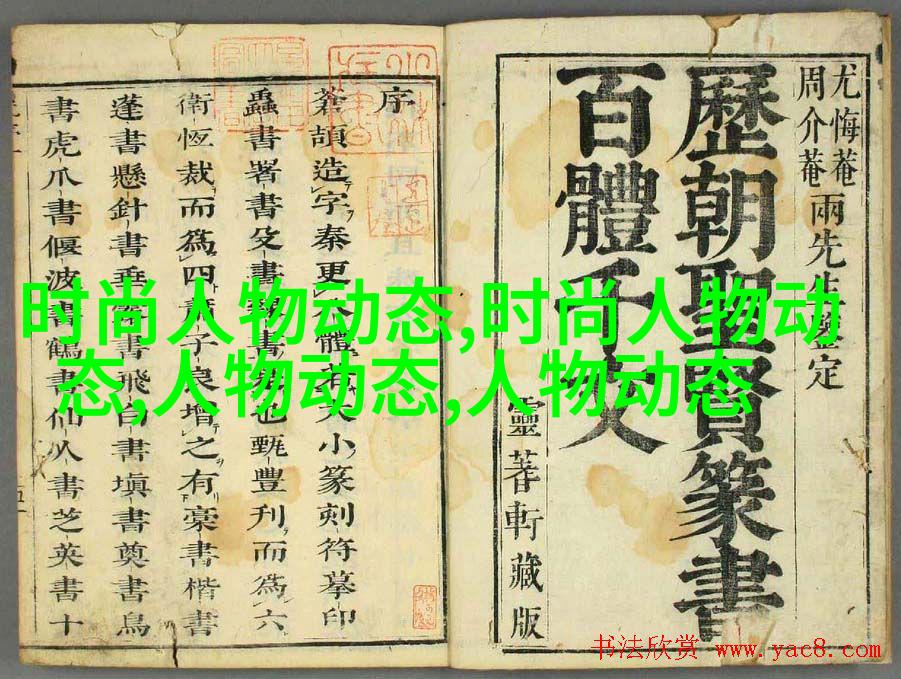 尤悔菴
周介菴
兩先生纂定
歷朝聖賢篆書
百體千文
靈蓍軒藏版
序
蒼頡造字秦更八體若大小篆刻符摹印
蟲書署書殳書隸書是也甄豐刋而為六
衛恆裁而為四蕭子良增之有槀書楷書
蓬書懸針書垂露書飛白書塡書奠書鳥
書虎爪書偃波書鶴書仙人書芝英書十
时尚人物动态,时尚人物动
态,人物动态,人物动态
书法欣赏 www.yac8.com